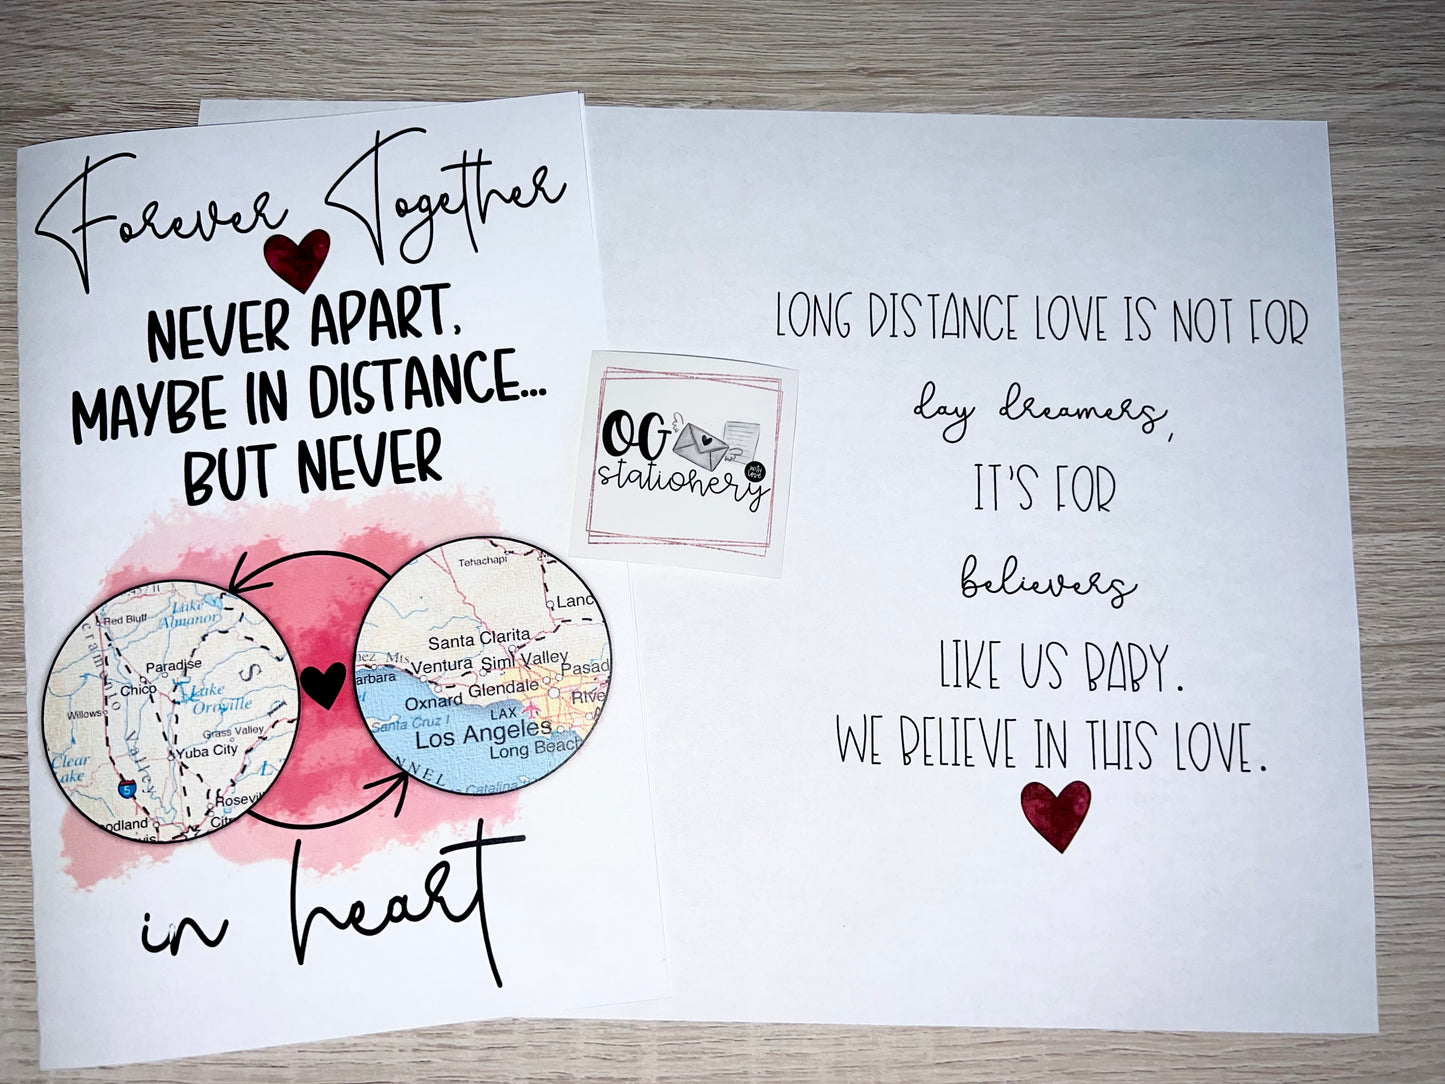 Forever Together
NEVER APART,
MAYBE IN DISTANCE...
BUT NEVER
Red Bluff
Lake
Almanor
Paradise
Chico
Lake
Oroville
Willows
Grass Valley
Yuba City
Clear
Lake
5
Rosevil
odland
Citr
vis
Sacramento Valley
Tehachapi
Lanc
Santa Clarita
nez Mts
Ventura Simi Valley
Pasad
arbara
Oxnard Glendale
Rive
Santa Cruz I
LAX
Los Angeles
Long Beach
NNEL
Catalina
in heart
OG
stationery
LONG DISTANCE LOVE IS NOT FOR
day dreamers,
IT'S FOR
believers
LIKE US BABY.
WE BELIEVE IN THIS LOVE.